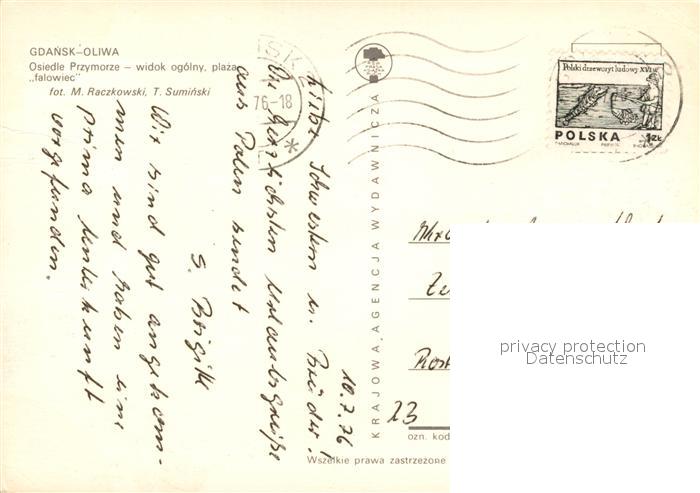 GDAŃSK—OLIWA
Osiedle Przymorze — widok ogólny, plaża,
„falowiec"
fot. M. Raczkowski, T. Sumiński
76-18
KRAJOWA AGENCJA WYDAWNICZA
Polski drzeworyt ludowy XVI w.
POLSKA 1ZŁ
10.7.76
Liebe Schwestern u. Brüder!
Die herzlichsten Urlaubsgrüße
aus Polen sendet
S. Brigitte
Wir sind gut angekom-
men und haben eine
prima Unterkunft
vorgefunden.
23
ozn. kod
Wszelkie prawa zastrzeżone
privacy protection
Datenschutz